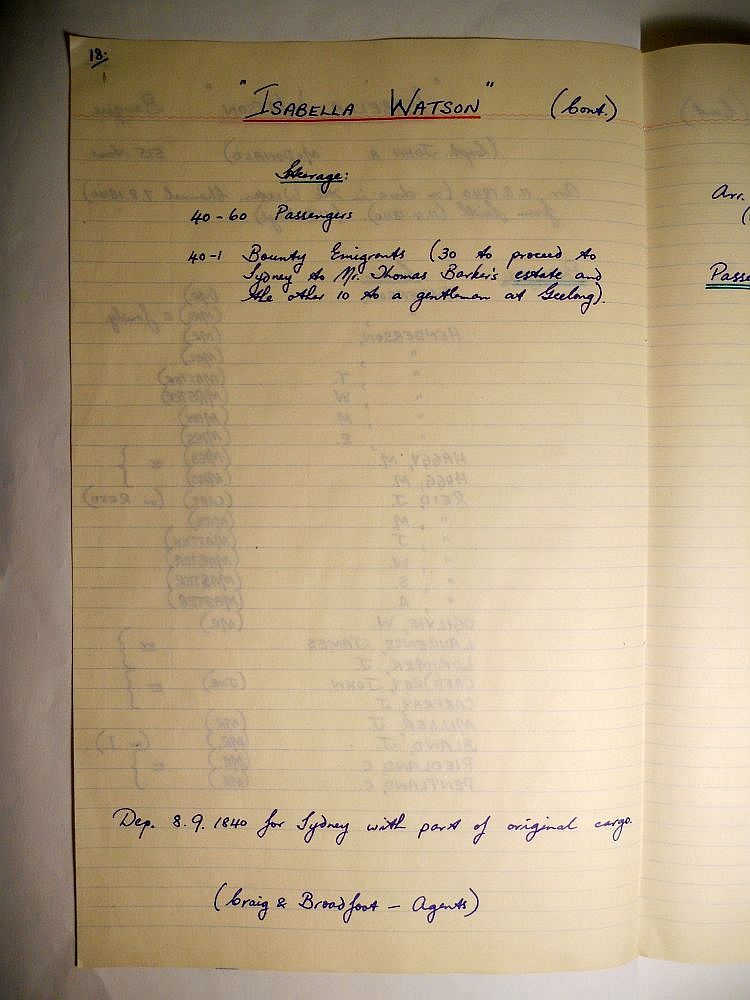 18.
"ISABELLA WATSON" (Cont.)
Steerage:
40-60 Passengers
40-1 Bounty Emigrants (30 to proceed to
Sydney to Mr. Thomas Barker's estate and
the other 10 to a gentleman at Geelong).
Dep. 8.9.1840 for Sydney with part of original cargo.
(Craig & Broadfoot - Agents)
Arr.
(
Passe